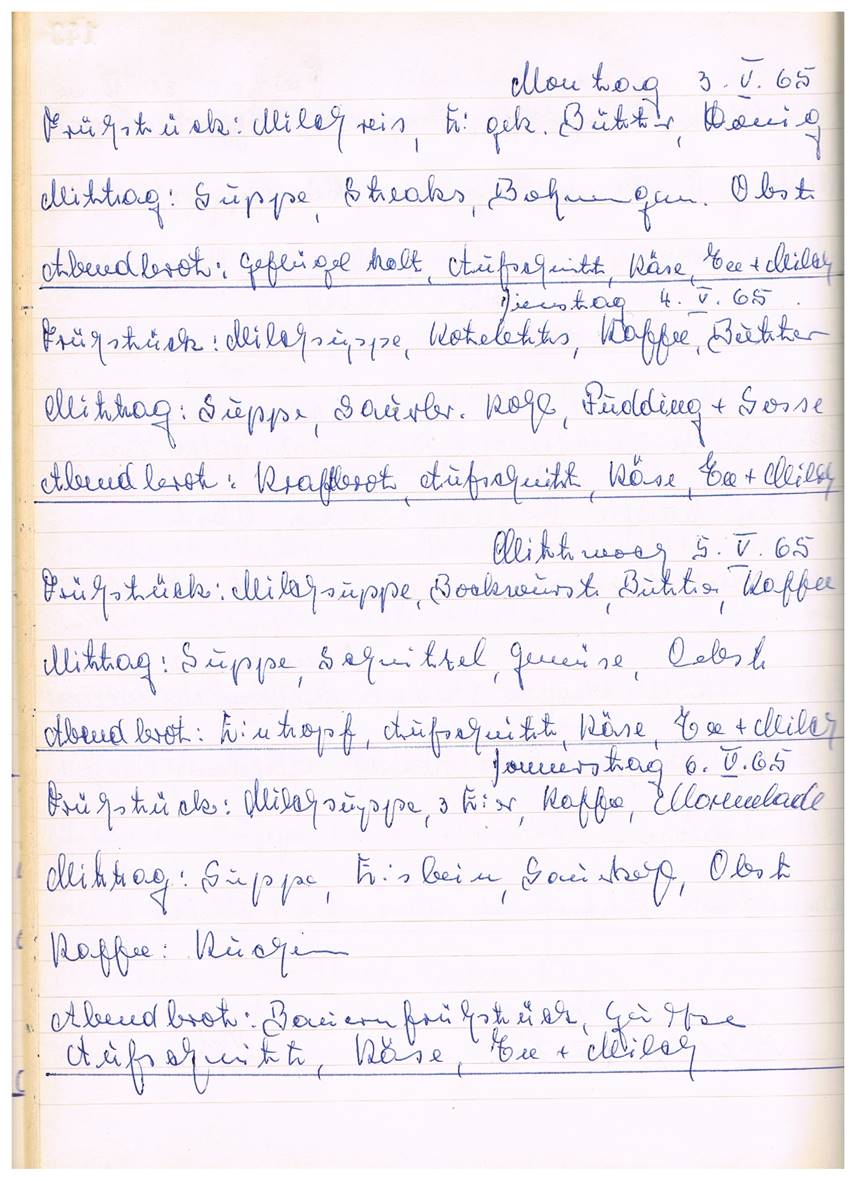 Montag 3. V. 65
Frühstück: Milchreis, Ei gek. Butter, Honig
Mittag: Suppe, Steaks, Bohnengem. Obst
Abendbrot: Geflügel kalt, Aufschnitt, Käse, Tee + Milch
Dienstag 4. V. 65.
Frühstück: Milchsuppe, Koteletts, Kaffee, Butter
Mittag: Suppe, Sauerbr. Kohl, Pudding + Sosse
Abendbrot: Kraftbrot, Aufschnitt, Käse, Tee + Milch
Mittwoch 5. V. 65
Frühstück: Milchsuppe, Bockwurst, Butter, Kaffee
Mittag: Suppe, Schnitzel, Gemüse, Obst
Abendbrot: Eintopf, Aufschnitt, Käse, Tee + Milch
Donnerstag 6. V. 65
Frühstück: Milchsuppe, 3 Eier, Kaffee, Marmelade
Mittag: Suppe, Eisbein, Sauerkohl, Obst
Kaffee: Kuchen
Abendbrot: Bauernfrühstück, Gurke
Aufschnitt, Käse, Tee + Milch